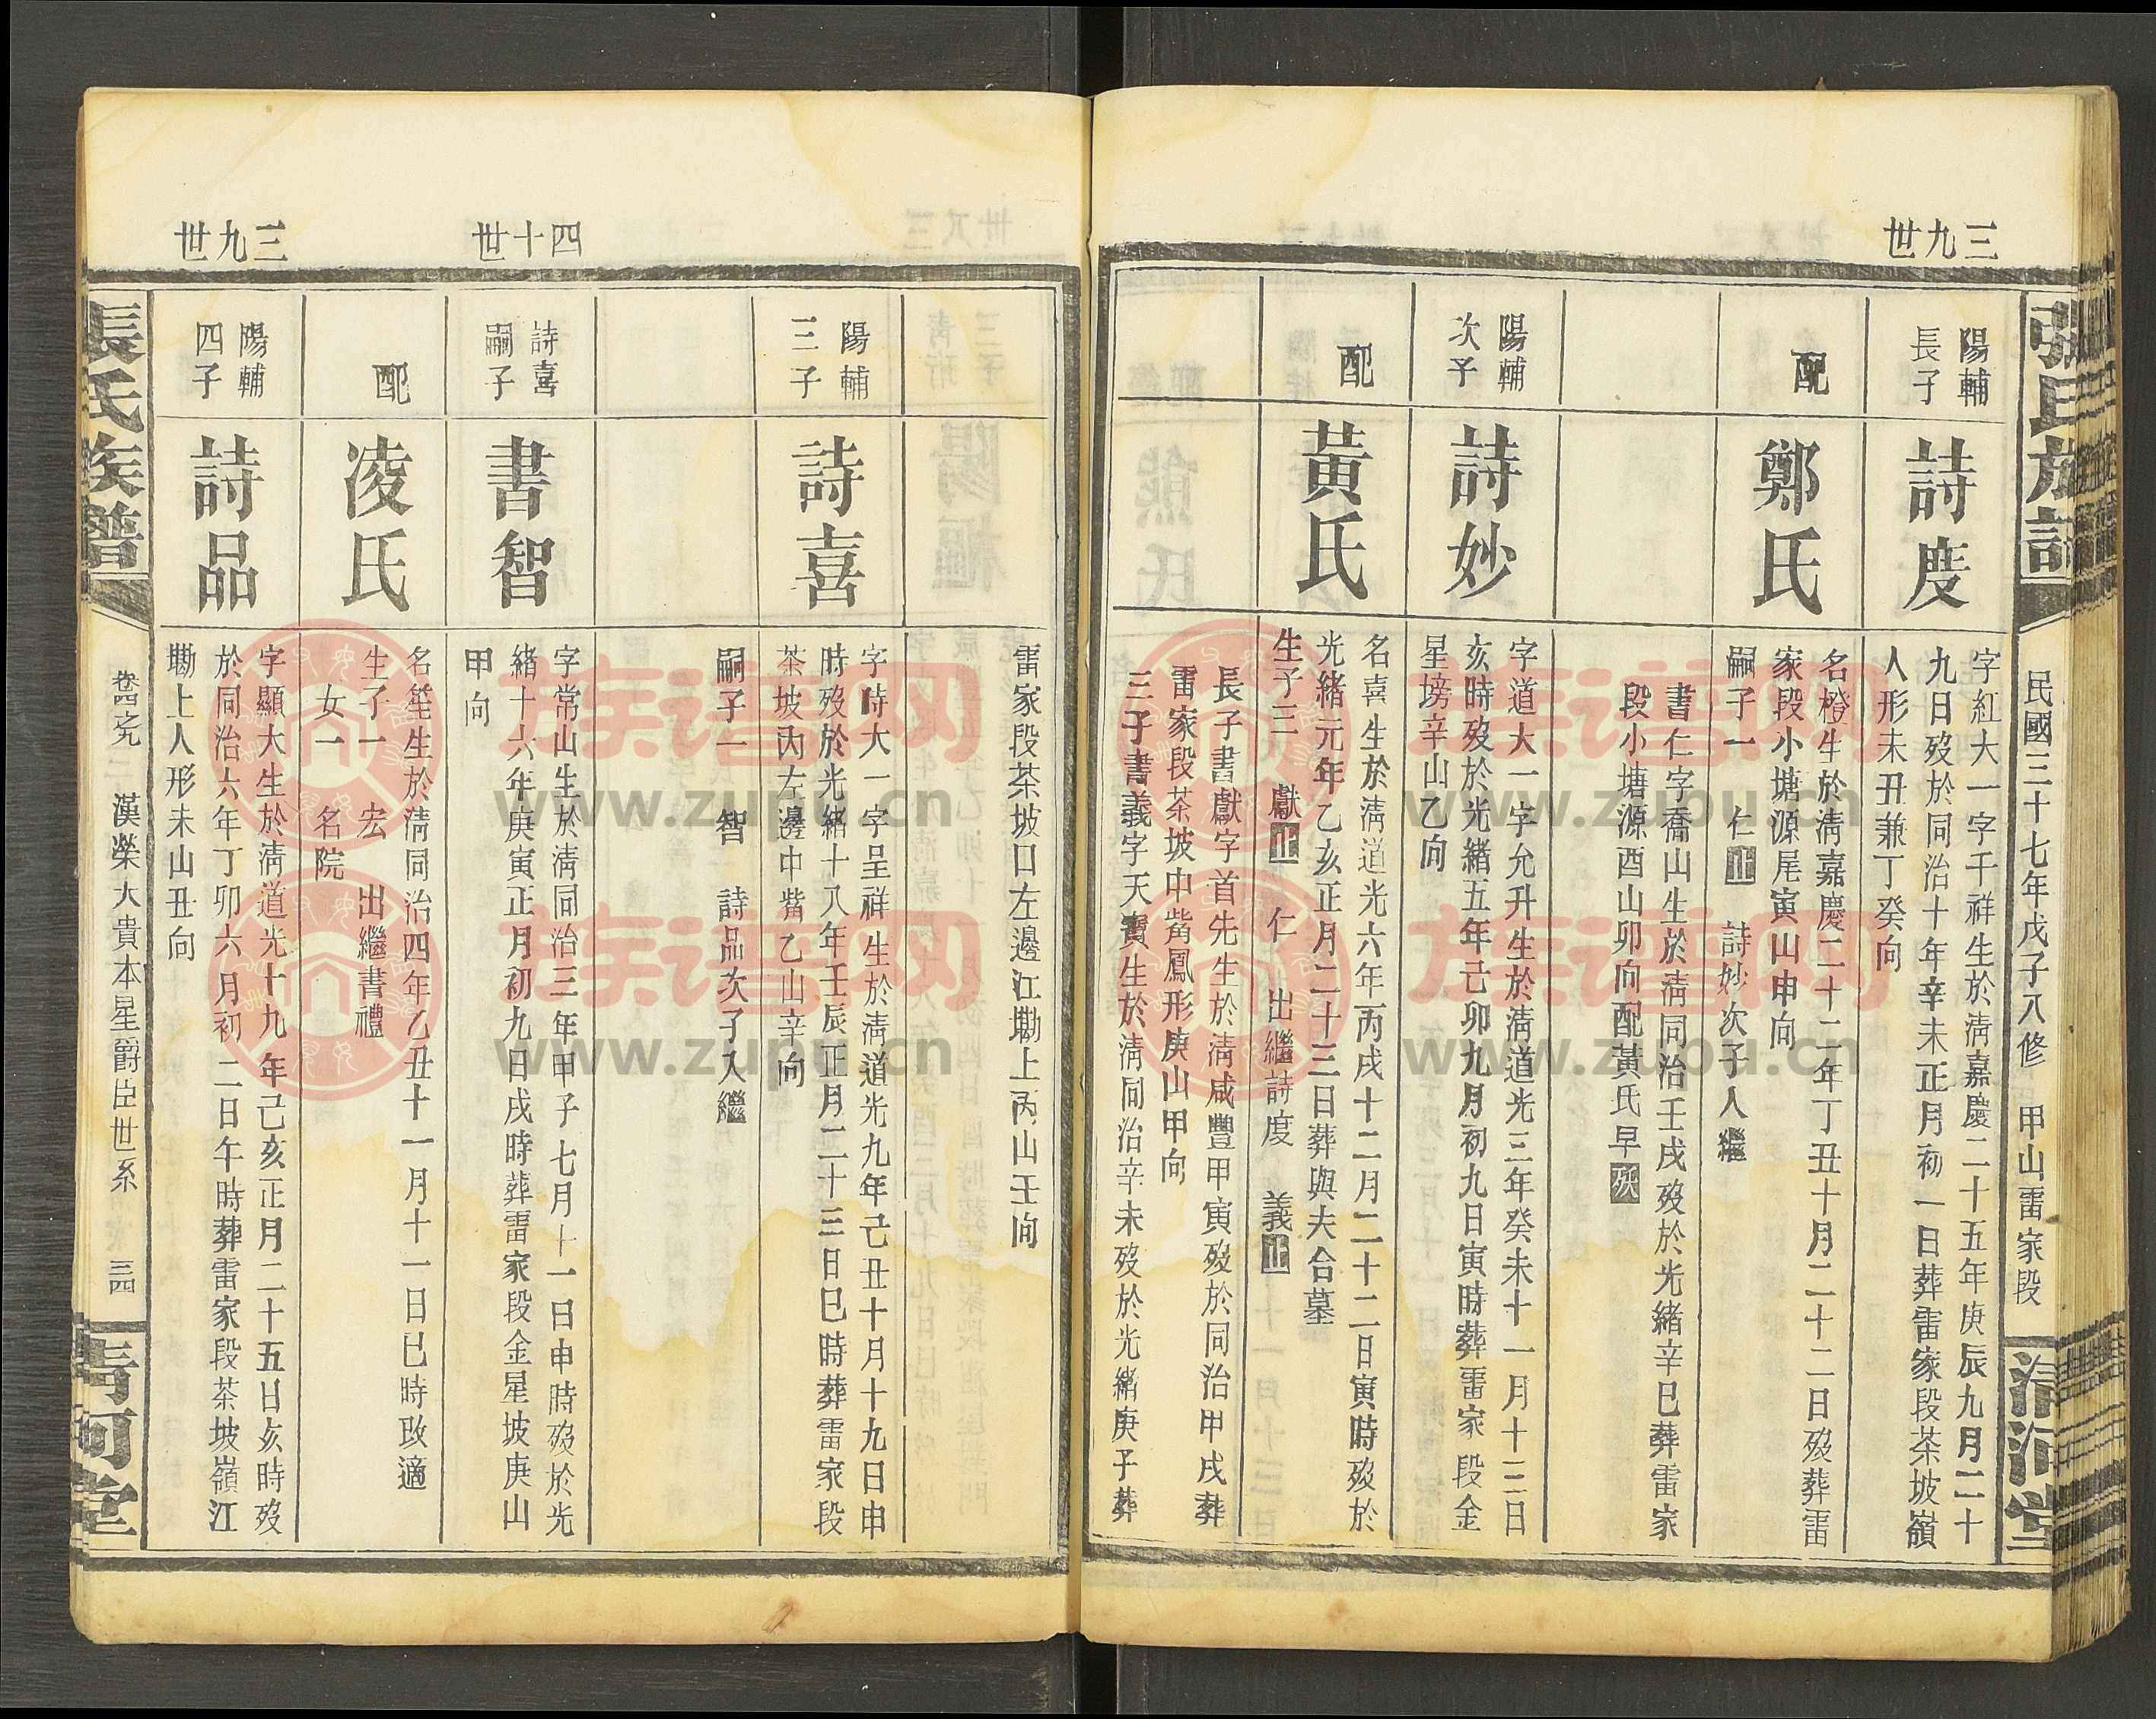 三九世
張氏族譜
民國三十七年戊子八修
甲山雷家段
清河堂
陽輔
長子
詩度
字紅大一字千祥生於淸嘉慶二十五年庚辰九月二十
九日歿於同治十年辛未正月初一日葬雷家段茶坡嶺
人形未丑兼丁癸向
配
鄭氏
名橙生於淸嘉慶二十二年丁丑十月二十二日歿葬雷
家段小塘源尾寅山申向
嗣子一 仁止 詩妙次子入繼
書仁字喬山生於淸同治壬戌歿於光緒辛巳葬雷家
段小塘源酉山卯向配黃氏早歿
陽輔
次子
詩妙
字道大一字允升生於淸道光三年癸未十一月十三日
亥時歿於光緒五年己卯九月初九日寅時葬雷家段金
星塝辛山乙向
配
黃氏
名喜生於淸道光六年丙戌十二月二十二日寅時歿於
光緒元年乙亥正月二十三日葬與夫合墓
生子三 獻止 仁 出繼詩度 義止
長子書獻字首先生於淸咸豐甲寅歿於同治甲戌葬
雷家段茶坡中觜鳳形庚山甲向
三子書義字天寶生於淸同治辛未歿於光緒庚子葬
雷家段茶坡口左邊江墈上丙山壬向
陽輔
三子
詩喜
字時大一字呈祥生於淸道光九年己丑十月十九日申
時歿於光緒十八年壬辰正月二十三日巳時葬雷家段
茶坡內左邊中觜乙山辛向
嗣子一 智 詩品次子入繼
四十世
詩喜
嗣子
書智
字常山生於淸同治三年甲子七月十一日申時歿於光
緒十六年庚寅正月初九日戌時葬雷家段金星坡庚山
甲向
配
凌氏
名笙生於淸同治四年乙丑十一月十一日巳時改適
生子一 宏 出繼書禮
女一 名院
三九世
陽輔
四子
詩品
字顯大生於淸道光十九年己亥正月二十五日亥時歿
於同治六年丁卯六月初二日午時葬雷家段茶坡嶺江
墈上人形未山丑向
張氏族譜
漢榮大貴本星爵臣世系
三四
清河堂
族谱网
www.zupu.cn
族谱网
www.zupu.cn
族谱网
www.zupu.cn
族谱网
www.zupu.cn